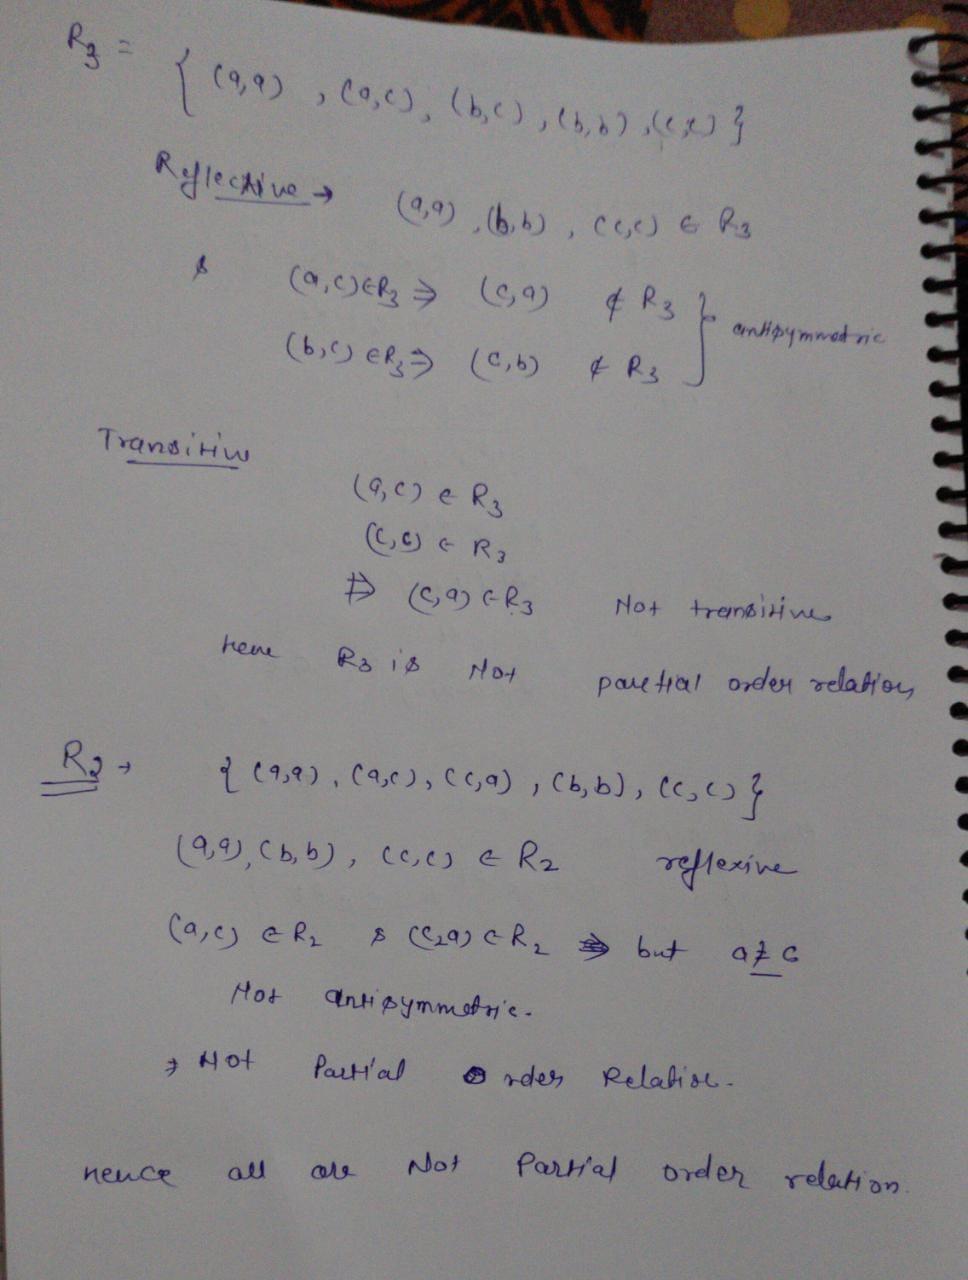 R₃ = { (a,a) , (a,c), (b,c) , (b,b) , (c,c) }
Reflective → (a,a) , (b,b) , (c,c) ∈ R₃
& (a,c) ∈ R₃ ⇒ (c,a) ∉ R₃ } antisymmetric
(b,c) ∈ R₃ ⇒ (c,b) ∉ R₃
Transitive
(a,c) ∈ R₃
(c,c) ∈ R₃
⇏ (c,a) ∈ R₃ Not transitive
here R₃ is Not partial order relation
R₂ → { (a,a) , (a,c), (c,a) , (b,b), (c,c) }
(a,a), (b,b) , (c,c) ∈ R₂ reflexive
(a,c) ∈ R₂ & (c,a) ∈ R₂ but a ≠ c
Not antisymmetric.
⇒ Not Partial Order Relation.
hence all are Not Partial order relation.